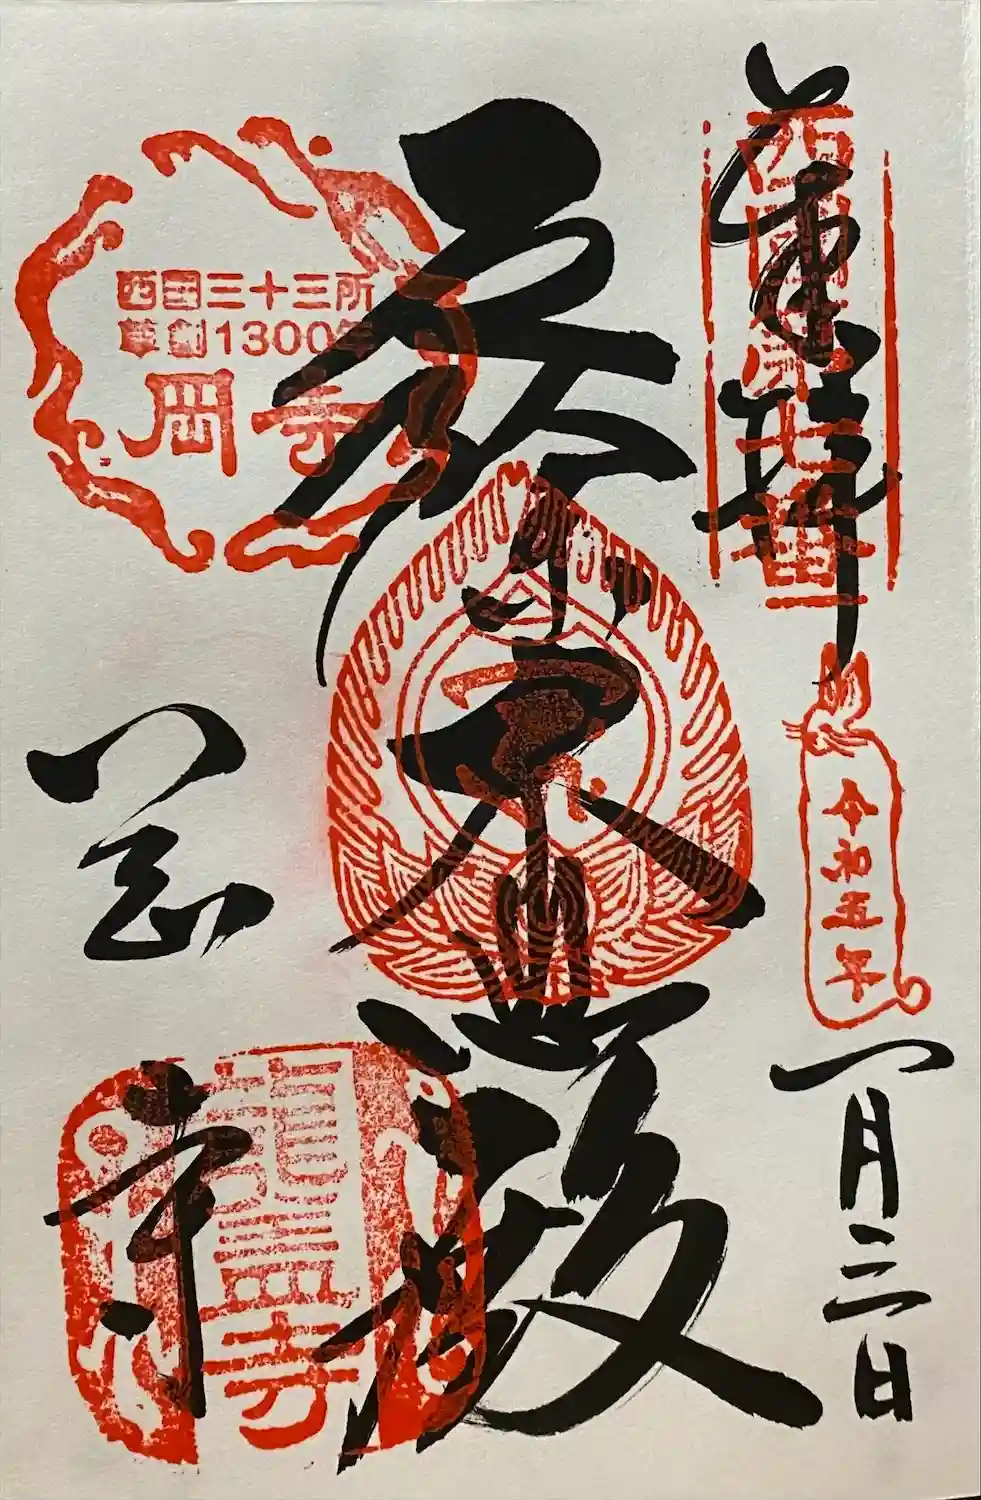 奉拝
西國第七番
令和五年
一月二日
西国三十三所
草創1300年
岡寺
岡寺
龍蓋寺